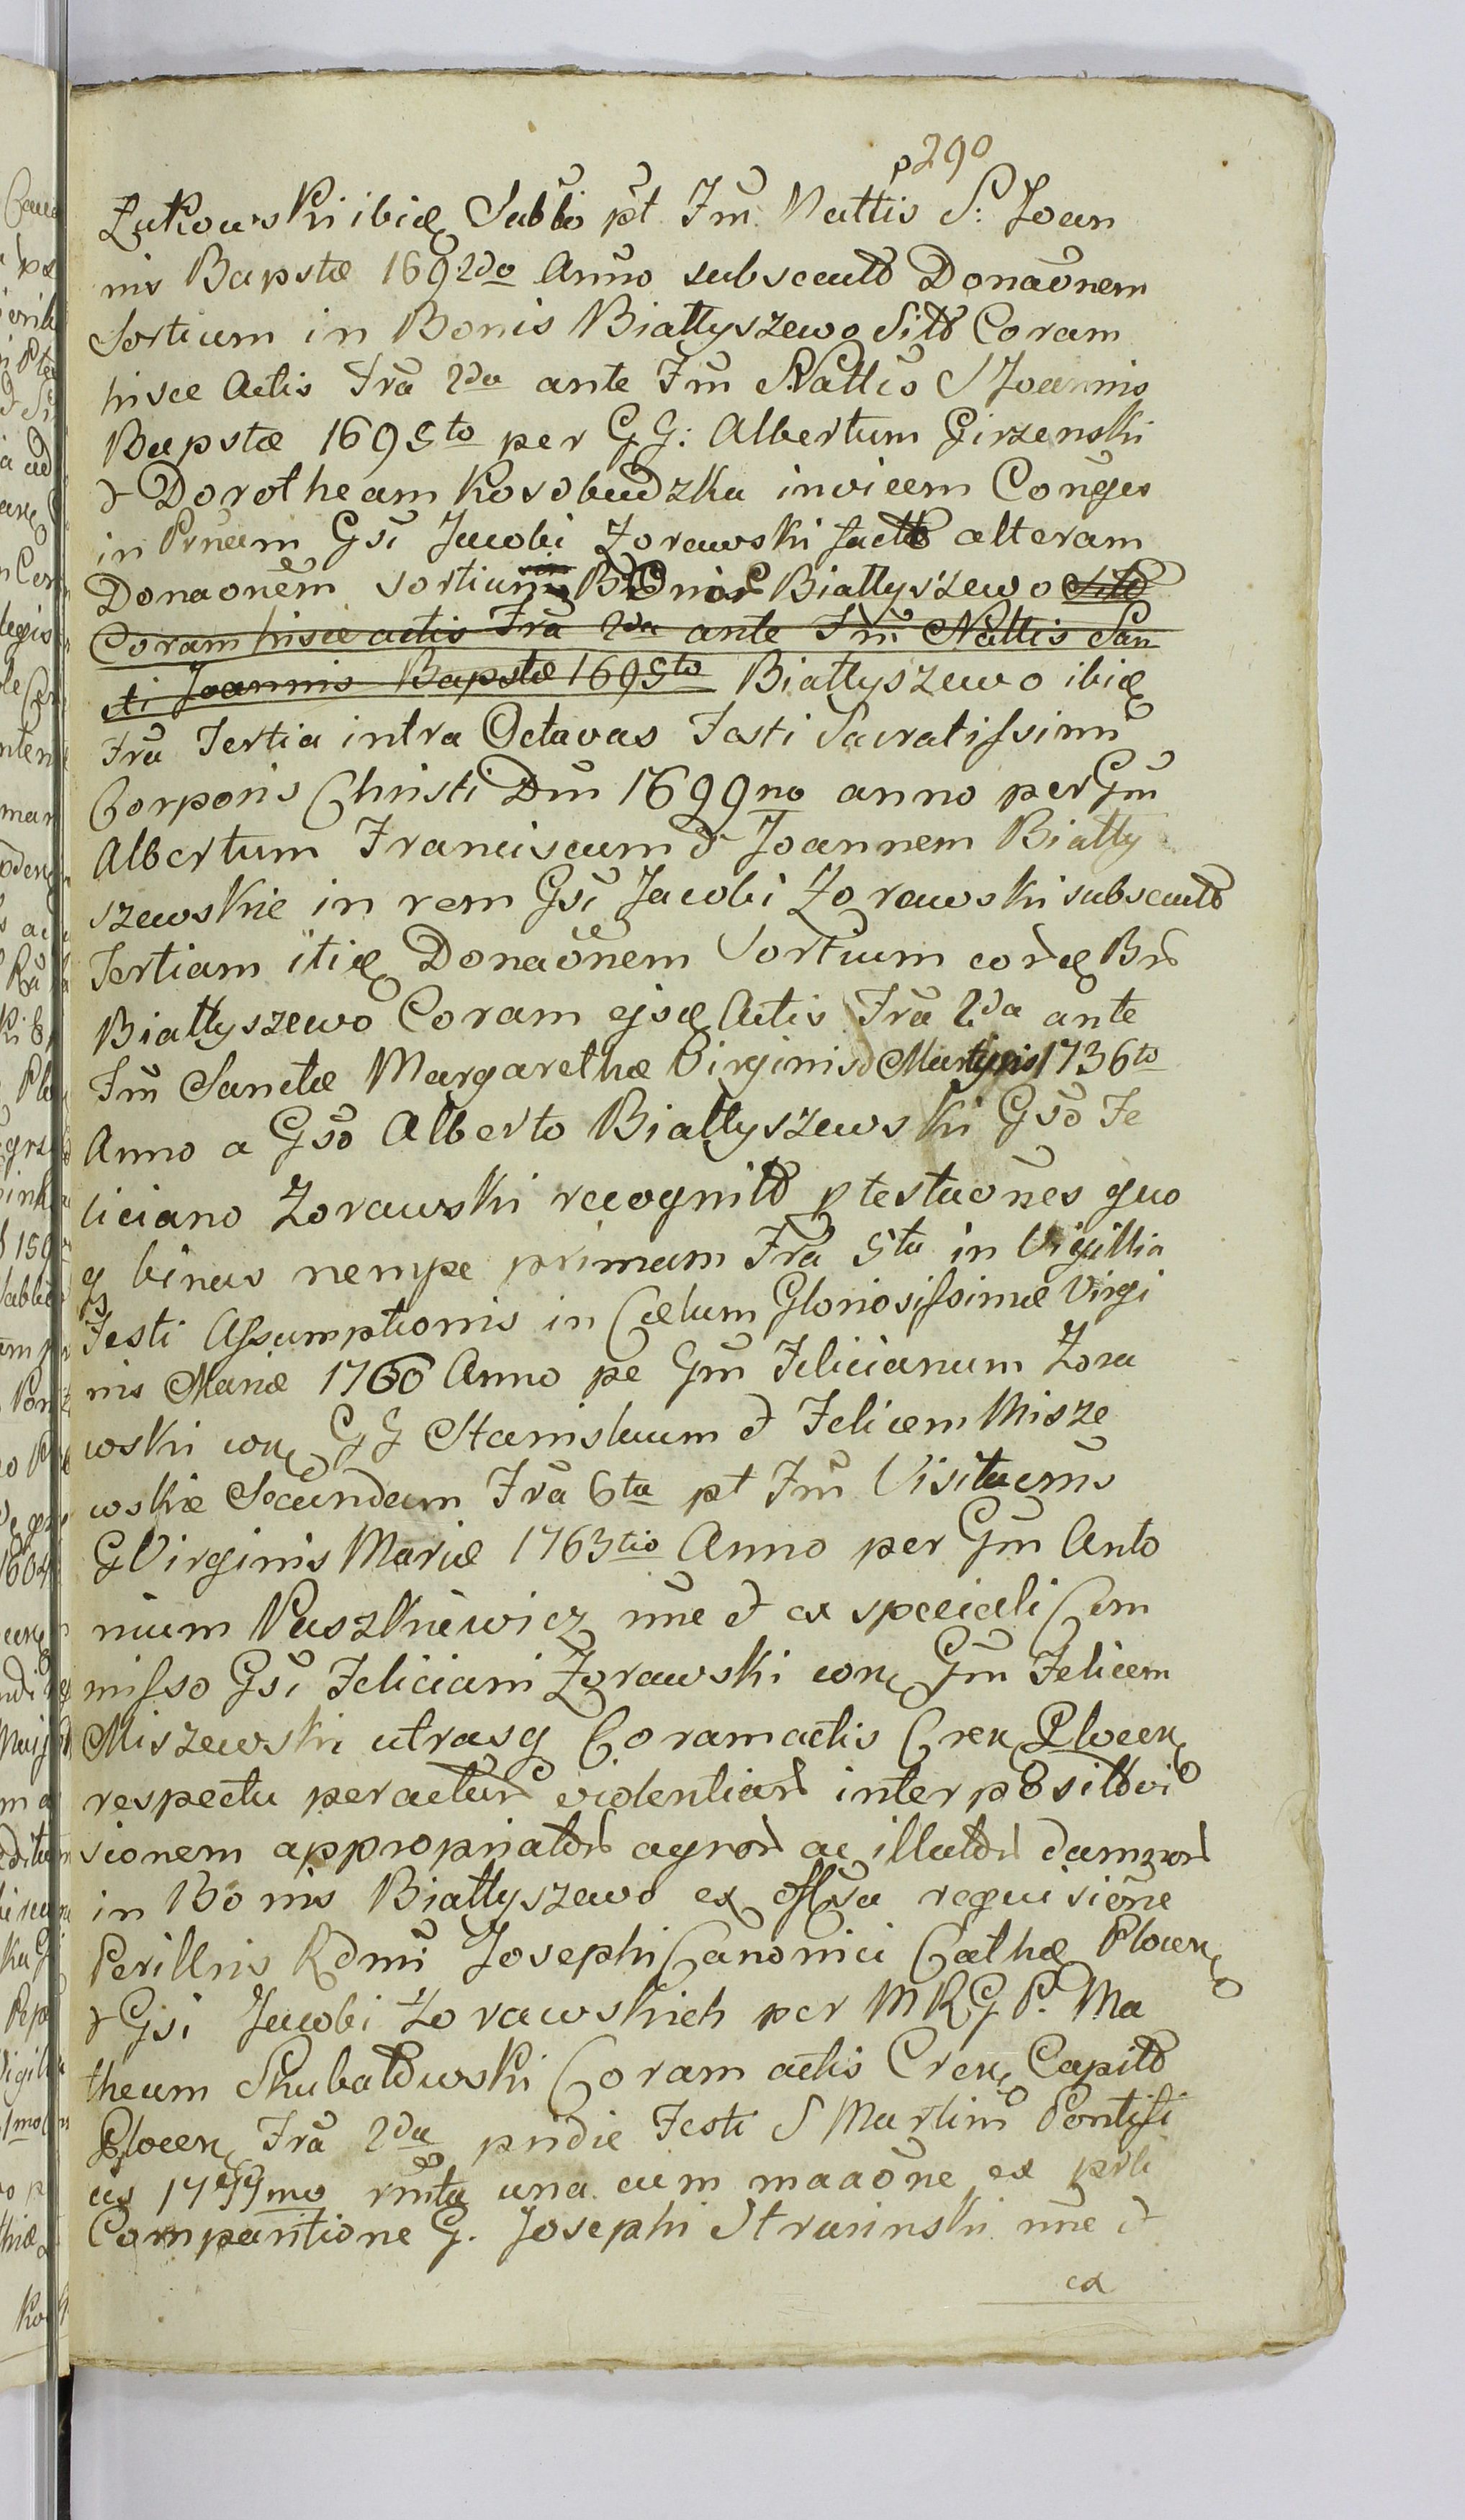 p 290
Żukowski ibid Sabbo pt Fm Nattis S: Joan
nis Bapstæ 1692do Anno subsecutb Donaonem
Sortium in Bonis Białłyszewo Sitb Coram
hisce Actis Fra 2da ante Fm Nattis S Joannis
Bapstæ 1695to per GG: Albertum Girzenski
& Dorotheam Kosobudzka invicem Conges
in Prneam Gsi Jacobi Zorawski factb alteram
Donaonem sortium Bonis Białłyszewo Sitb
Coram hisce actis Fra 2da ante Fm Nattis San
cti Joannis Bapstæ 1695to Białłyszewo ibid
Fra Tertia intra Octavas Festi Sacratissimi
Corporis Christi Dni 1699no anno per Gm
Albertum Franciscum & Joannem Białły
szewskie in rem Gsi Jacobi Zorawski subsecutb
Tertiam itid Donaonem Sortium eord Br
Białłyszewo Coram ejsd Actis Fra 2da ante
Fm Sanctæ Margarethæ Virginis & Martyris 1736to
Anno a Gso Alberto Białłyszewski Gso Fe
liciano Zorawski recognitb ptestaones quo
q binas nempe primam Fra 5ta in Vigillia
Festi Assumptionis in Cælum Gloriosissimæ Virgi
nis Mariæ 1760 Anno pe Gm Felicianum Zora
wski con GG Stanislaum & Felicem Misze
wskie Secundam Fra 6ta pt Fm Visitaonis
G Virginis Mariæ 1763tio Anno per Gm Anto
nium Paszkiewicz nne & ex speciali Com
misso Gsi Feliciani Zorawski con Gm Felicem
Miszewski utrasq Coram actis Cren Plocen
respectu peractur evidentiar interpositb vi
sionem appropriatbr agror ac illatbr damnor
in Bonis Białłyszewo ex offsa requisione
Perillris Rdmi Josephi Canonici Cathæ Plocen
& Gsi Jacobi Zorawskich per MRGP. Ma
theum Skubatowski Coram actis Cren Capitb
Plocen Fra 2da pridie Festi S Martini Pontifi
cis 17 mo rmta una cum maaone ex prli
Comparitione G. Josephi Strusinski nne &
ex